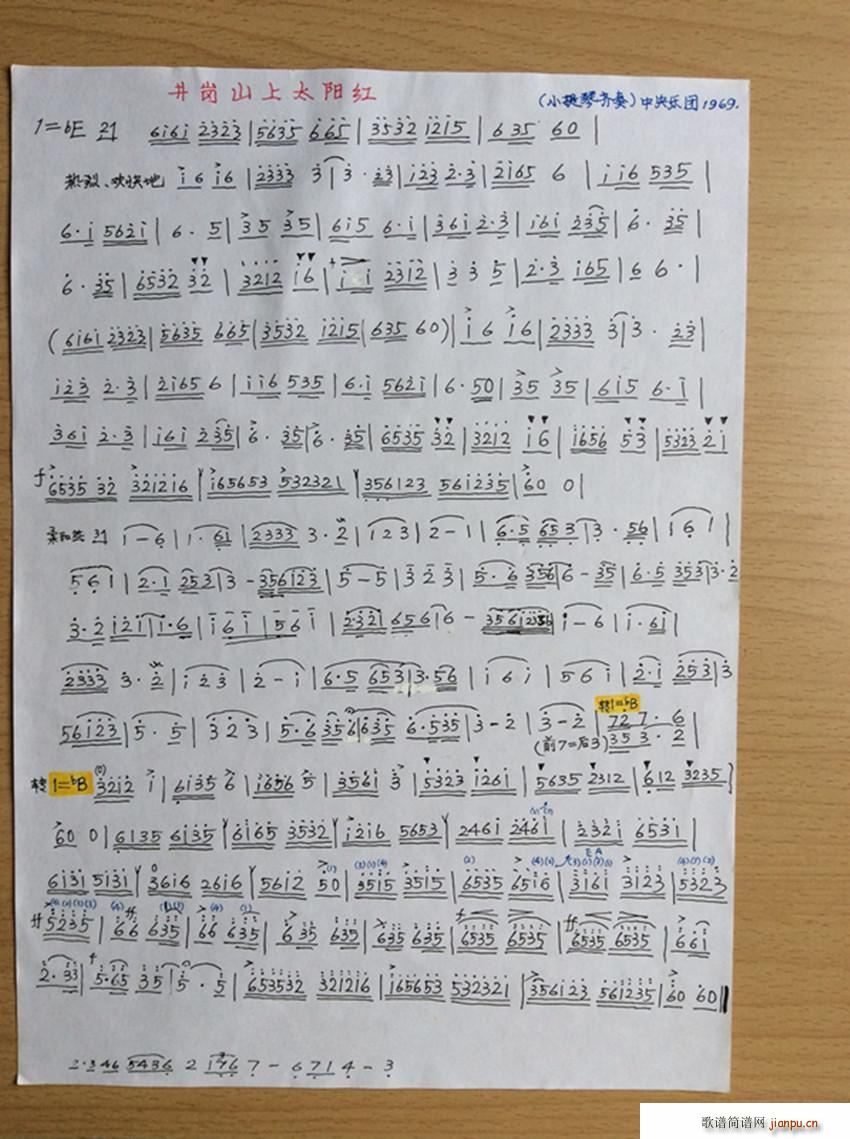 井岗山上太阳红
(小提琴齐奏)中央乐团1969.
1=♭E 6i6i 2323|5635 665|3532 i2i5|6 35 60|
热烈、欢快地 i6 i6|2333 3|3· 23|i23 2·3|2i65 6|ii6 535|
6·i 562i|6· 5|35 35|6i5 6·i|36i 2·3|i6i 235|6· 35|
6· 35|6532 32|32i2 i6|i i 23i2|3 3 5|2·3 i65|6 6·|
(6i6i 2323|5635 665|3532 i2i5|635 60)|i6 i6|2333 3|3· 23|
i23 2·3|2i65 6|ii6 535|6·i 562i|6·50|35 35|6i5 6·i|
36i 2·3|i6i 235|6· 35|6· 35|6535 32|32i2 i6|i656 53|5323 2i|
f 6535 32 32i2i6|i65653 532321|356123 56i235|60 0|
1-6|1·61|2333 3·2|123|2-1|6·5 653|3·56|161|
561|2·1 253|3-356i23|5-5|323|5·6 356|6-35|6·5 353|3·2
3·2 i2i|i·6|i6i|56i|2·32i 656|6-|i-6|i·6i|
2333 3·2|i23|2-i|6·5 653|3·56|i6i|56i|2·i 253|3
56i23|5·5|323|5·6 356|635 6·535|3-2|3-2|727·6
转1=♭B
(前7=后3)353·2
转 1=♭B 32i2 i|6i35 6|i656 5|356i 3|5323 i26i|5635 23i2|6i2 3235|
60 0|6i35 6i35|6i65 3532|i2i6 5653|246i 246i|232i 653i|
6i3i 5i3i|36i6 26i6|56i2 50|35i5 35i5|6535 65i6|3i6i 3i23|5323
5235|66 635|66 635|635 635|635 635|6535 6535|6535 6535|66i|
2·33|5·65 35|5·5|653532 32i2i6|i65653 53232i|356i23 56i235|60 60‖
2·346 5436 2 1 7- 6714-3
歌谱简谱网 jianpu.cn